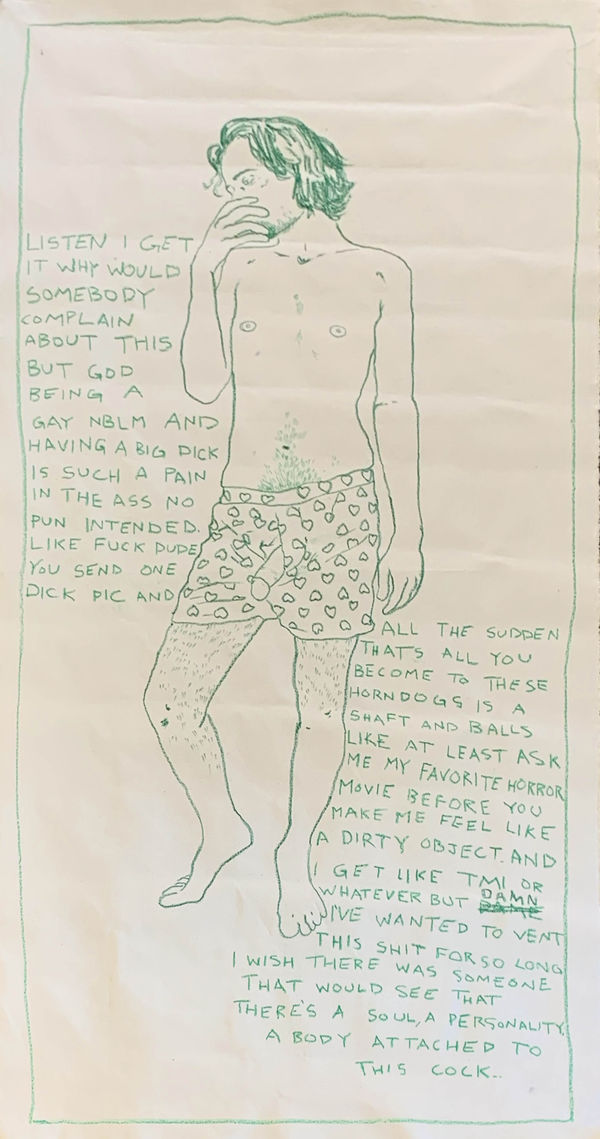 LISTEN I GET
IT WHY WOULD
SOMEBODY
COMPLAIN
ABOUT THIS
BUT GOD
BEING A
GAY NBLM AND
HAVING A BIG DICK
IS SUCH A PAIN
IN THE ASS NO
PUN INTENDED.
LIKE FUCK DUDE
YOU SEND ONE
DICK PIC AND
ALL THE SUDDEN
THAT'S ALL YOU
BECOME TO THESE
HORNDOGS IS A
SHAFT AND BALLS
LIKE AT LEAST ASK
ME MY FAVORITE HORROR
MOVIE BEFORE YOU
MAKE ME FEEL LIKE
A DIRTY OBJECT. AND
I GET LIKE TMI OR
WHATEVER BUT DAMN
I'VE WANTED TO VENT
THIS SHIT FOR SO LONG
I WISH THERE WAS SOMEONE
THAT WOULD SEE THAT
THERE'S A SOUL, A PERSONALITY,
A BODY ATTACHED TO
THIS COCK...